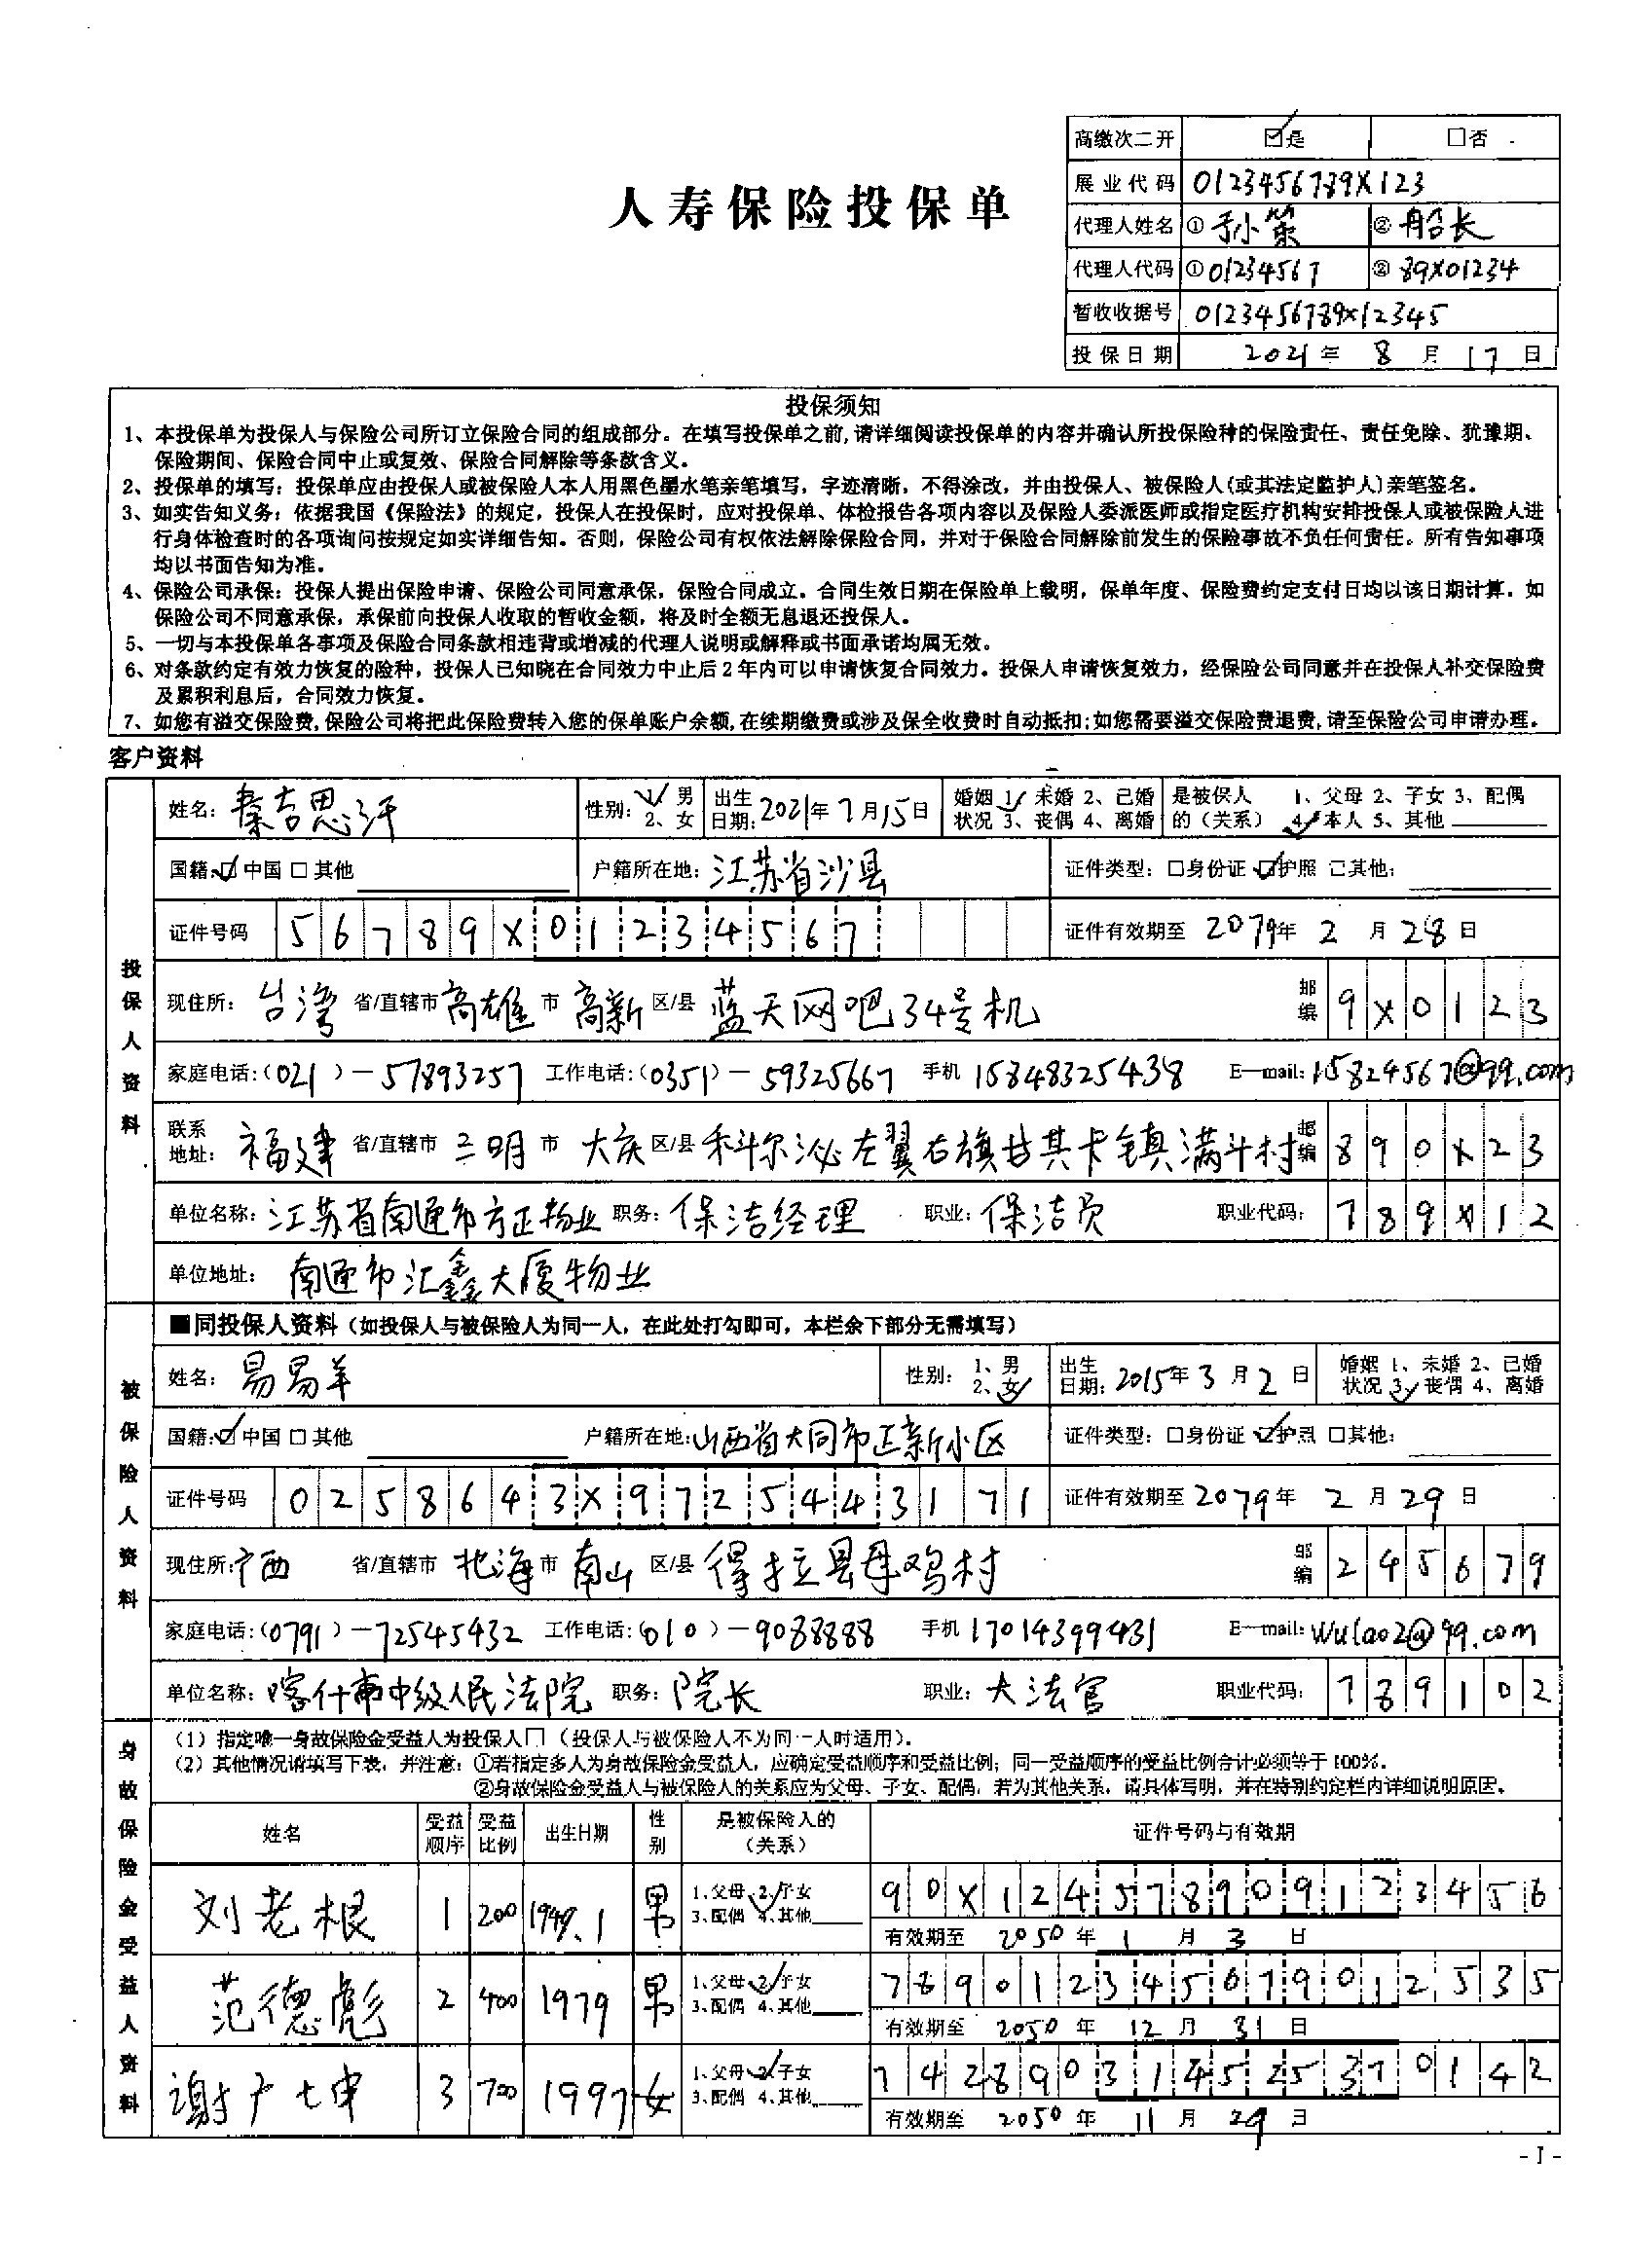 高缴次二开 ☑是 □否
人寿保险投保单
展业代码 0123456789X123
代理人姓名 ①孙策 ②船长
代理人代码 ①01234567 ②89X01234
暂收收据号 0123456789X12345
投保日期 2021年 8月 17日
投保须知
1、本投保单为投保人与保险公司所订立保险合同的组成部分。在填写投保单之前,请详细阅读投保单的内容并确认所投保险种的保险责任、责任免除、犹豫期、
保险期间、保险合同中止或复效、保险合同解除等条款含义。
2、投保单的填写：投保单应由投保人或被保险人本人用黑色墨水笔亲笔填写，字迹清晰，不得涂改，并由投保人、被保险人(或其法定监护人)亲笔签名。
3、如实告知义务：依据我国《保险法》的规定，投保人在投保时，应对投保单、体检报告各项内容以及保险人委派医师或指定医疗机构安排投保人或被保险人进
行身体检查时的各项询问按规定如实详细告知。否则，保险公司有权依法解除保险合同，并对于保险合同解除前发生的保险事故不负任何责任。所有告知事项
均以书面告知为准。
4、保险公司承保：投保人提出保险申请、保险公司同意承保，保险合同成立。合同生效日期在保险单上载明，保单年度、保险费约定支付日均以该日期计算。如
保险公司不同意承保，承保前向投保人收取的暂收金额，将及时全额无息退还投保人。
5、一切与本投保单各事项及保险合同条款相违背或增减的代理人说明或解释或书面承诺均属无效。
6、对条款约定有效力恢复的险种，投保人已知晓在合同效力中止后2年内可以申请恢复合同效力。投保人申请恢复效力，经保险公司同意并在投保人补交保险费
及累积利息后，合同效力恢复。
7、如您有溢交保险费,保险公司将把此保险费转入您的保单账户余额,在续期缴费或涉及保全收费时自动抵扣;如您需要溢交保险费退费,请至保险公司申请办理。
客户资料
投保人资料
姓名：秦吉思汗 性别：1、男 2、女 出生日期：2021年7月15日 婚姻状况 1、未婚 2、已婚 3、丧偶 4、离婚 是被保人的（关系） 1、父母 2、子女 3、配偶 4、本人 5、其他
国籍：☑中国 □其他 户籍所在地：江苏省沙县 证件类型：□身份证 ☑护照 □其他：
证件号码 56789X01234567 证件有效期至 2079年 2月 28日
现住所：台湾 省/直辖市 高雄 市 高新 区/县 蓝天网吧34号机 邮编 9X0123
家庭电话：(021)－57893257 工作电话：(0351)－59325667 手机 15848325438 E—mail：15824567@qq.com
联系地址：福建 省/直辖市 三明 市 大庆 区/县 科尔沁左翼右旗甘其卡镇满斗村 邮编 890X23
单位名称：江苏省南通市方正物业 职务：保洁经理 职业：保洁员 职业代码：789X12
单位地址：南通市汇鑫大厦物业
被保险人资料
■同投保人资料（如投保人与被保险人为同一人，在此处打勾即可，本栏余下部分无需填写）
姓名：易易羊 性别：1、男 2、女 出生日期：2015年3月2日 婚姻状况 1、未婚 2、已婚 3、丧偶 4、离婚
国籍：☑中国 □其他 户籍所在地：山西省大同市正新小区 证件类型：□身份证 ☑护照 □其他：
证件号码 0258643X9725443171 证件有效期至 2079年 2月 29日
现住所：宁西 省/直辖市 北海 市 南山 区/县 得拉县母鸡村 邮编 245679
家庭电话：(0791)－72545432 工作电话：(010)－9088888 手机 17014399431 E—mail：wulao2@qq.com
单位名称：喀什市中级人民法院 职务：院长 职业：大法官 职业代码：789102
身故保险金受益人资料
（1）指定唯一身故保险金受益人为投保人□（投保人与被保险人不为同一人时适用）。
（2）其他情况请填写下表，并注意：①若指定多人为身故保险金受益人，应确定受益顺序和受益比例；同一受益顺序的受益比例合计必须等于100%。
②身故保险金受益人与被保险人的关系应为父母、子女、配偶，若为其他关系，请具体写明，并在特别约定栏内详细说明原因。
姓名 受益顺序 受益比例 出生日期 性别 是被保险人的（关系） 证件号码与有效期
刘老根 1 200 1949.1 男 1、父母 2、子女 3、配偶 4、其他 90X124578909123456
有效期至 2050年 1月 3日
范德彪 2 400 1979 男 1、父母 2、子女 3、配偶 4、其他 789012345679012535
有效期至 2050年 12月 31日
谢广坤 3 700 1997 女 1、父母 2、子女 3、配偶 4、其他 742890314525370142
有效期至 2050年 11月 29日
- 1 -